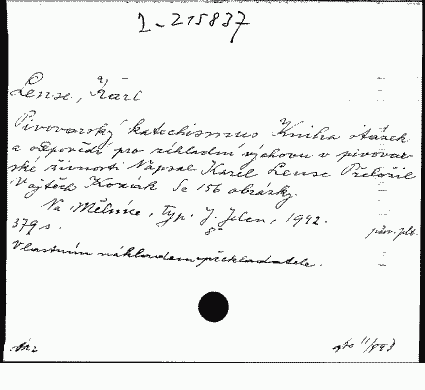 I-215837
Lense, Karl
Pivovarský katechismus Kniha otázek
a odpovědí pro základní výchovu v pivovar-
ské živnosti Napsal Karel Lense Přeložil
Vojtěch Kozák Se 156 obrázky.
Na Mělníce, typ. J. Jelen, 1942.
379 s. 8°
Vlastním nákladem překladatele.